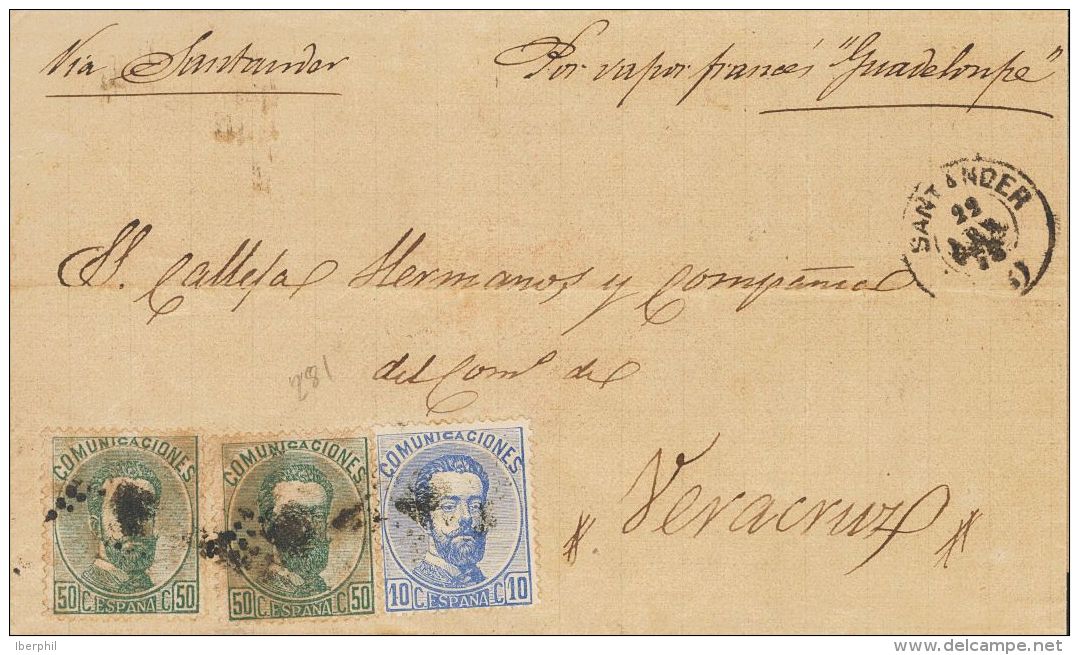 Via Santander
Por vapor francés "Guadeloupe"
SANTANDER
22
S. Calleja Hermanos y Compañia
del Coml de
Veracruz
281
COMUNICACIONES
50 C. ESPAÑA C 50
COMUNICACIONES
50 C. ESPAÑA C 50
COMUNICACIONES
10 C. ESPAÑA C 10
Iberphil
delcampe.net